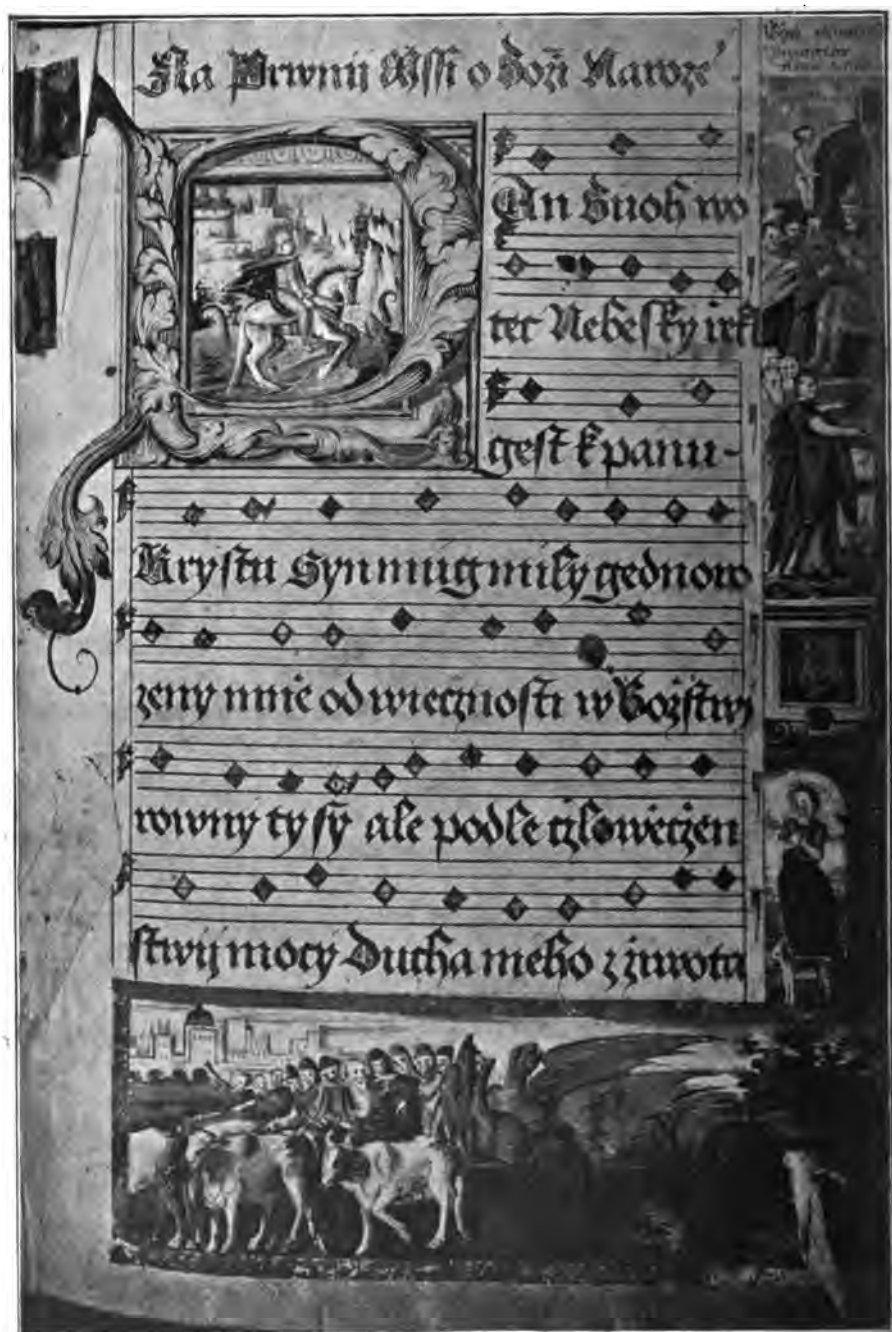 Na Prwnij Mssi o Boží Naroze
PAn Buoh wo
tec Nebesky rzekl
gest k panu-
Krystu Syn muig mily gednoro
zeny mnie od wiecznosti w Bozstwi
rowny ty sy ale podle czlowieczen
stwij mocy Ducha meho z ziwota